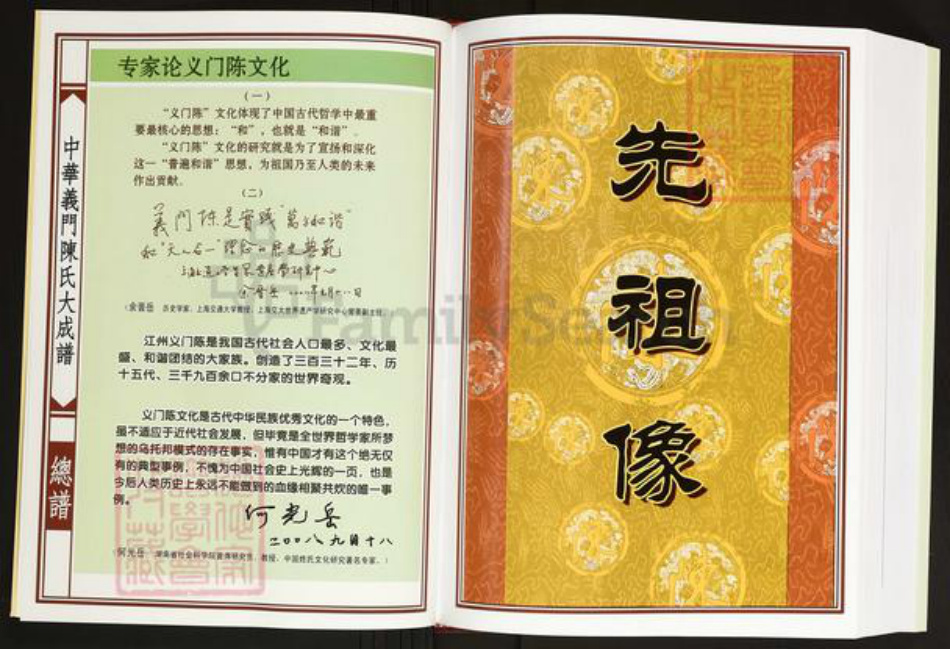 专家论义门陈文化
（一）
“义门陈”文化体现了中国古代哲学中最重
要最核心的思想：“和”，也就是“和谐”。
“义门陈”文化的研究就是为了宣扬和深化
这一“普遍和谐”思想，为祖国乃至人类的未来
作出贡献。
（二）
義门陈是实践“万分和谐”
和“天人合一”理念的历史典範
（余晋岳 历史学家，上海交通大学教授，上海交大世界遗产学研究中心常务副主任。
江州义门陈是我国古代社会人口最多、文化最
盛、和谐团结的大家族。创造了三百三十二年、历
十五代、三千九百余口不分家的世界奇观。
义门陈文化是古代中华民族优秀文化的一个特色，
虽不适应于近代社会发展，但毕竟是全世界哲学家所梦
想的乌托邦模式的存在事实，惟有中国才有这个绝无仅
有的典型事例，不愧为中国社会史上光辉的一页，也是
今后人类历史上永远不能做到的血缘相聚共炊的唯一事
例。
何光岳
二〇〇八九月十八
（何光岳 湖南省社会科学院资博研究员、教授，中国姓氏文化研究著名专家。）
中華義門陳氏大成譜
總譜
先祖像
FamilySearch